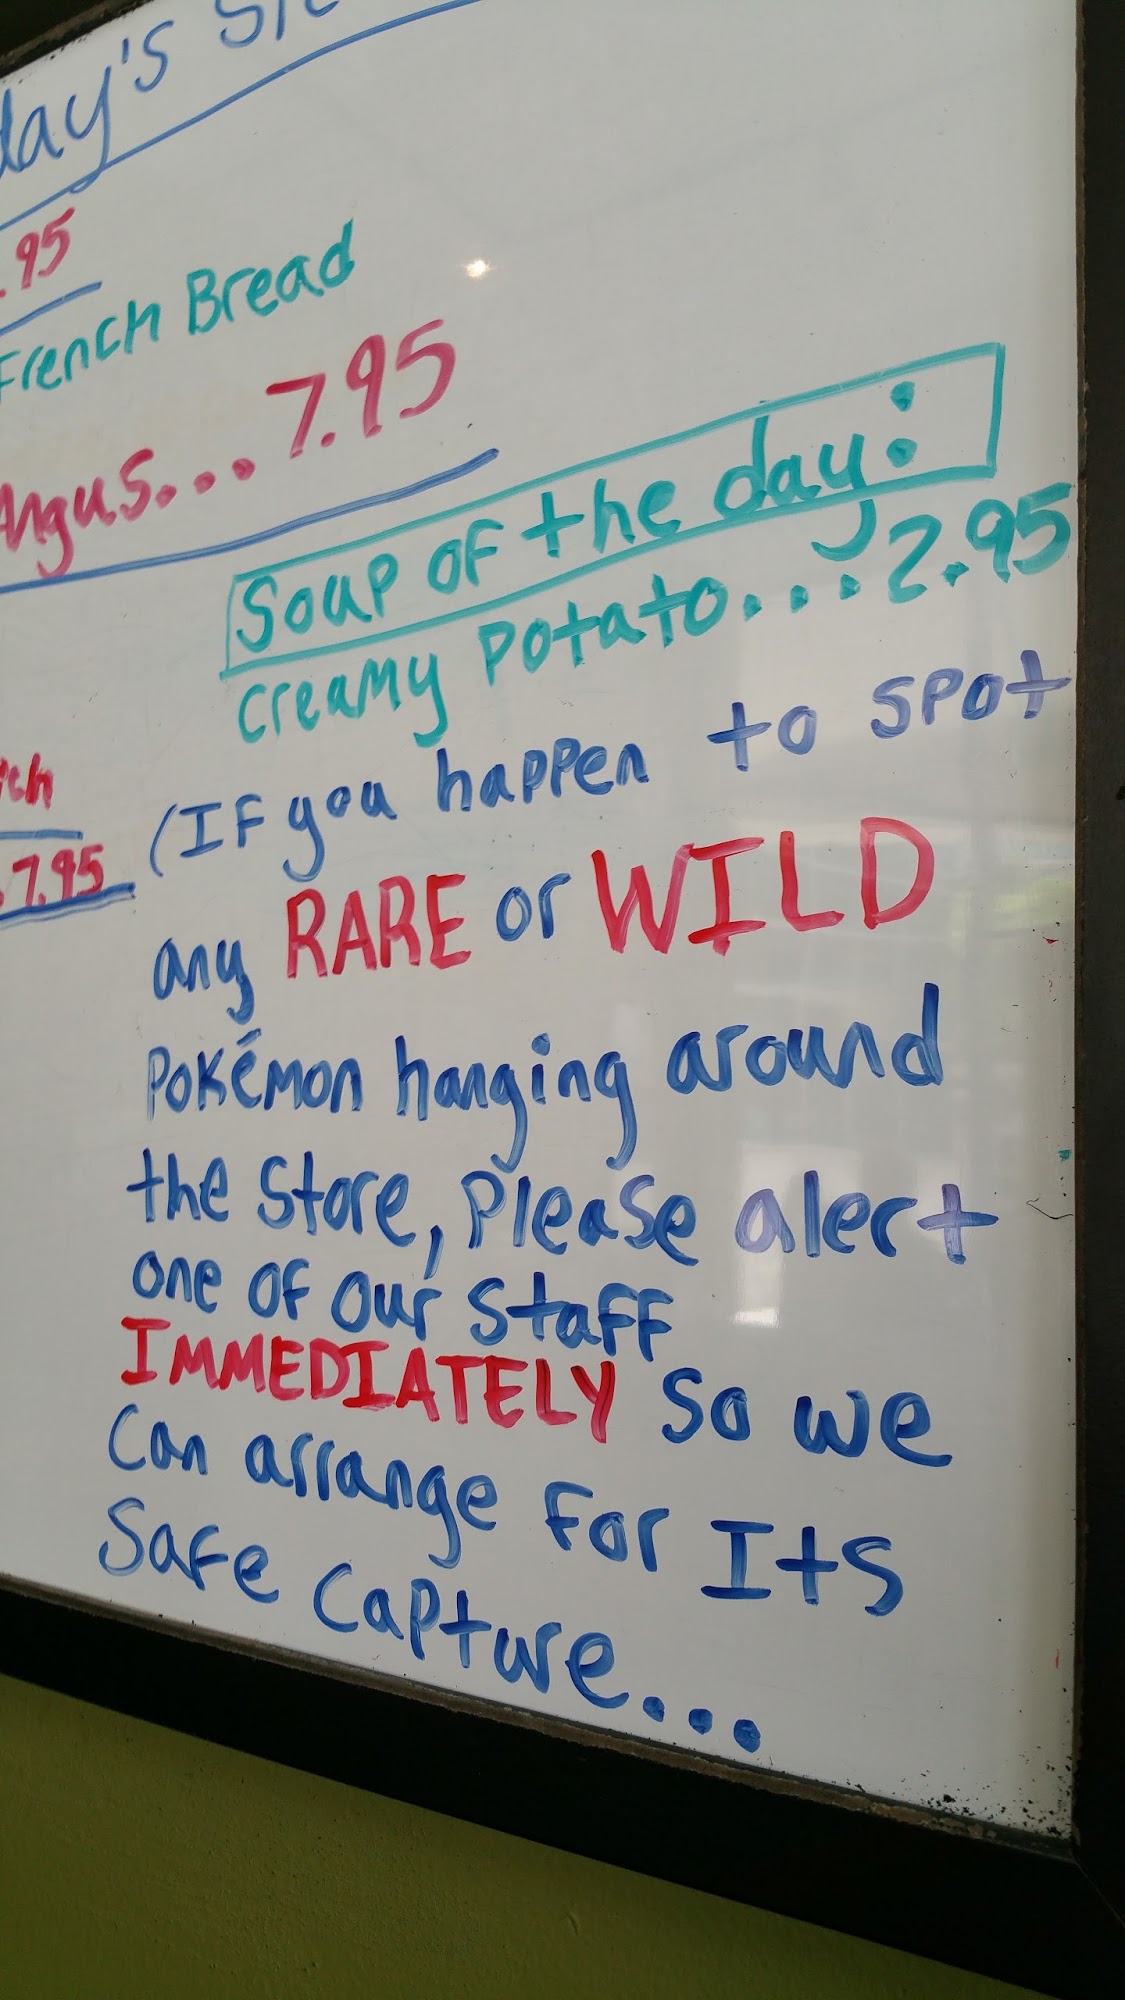 day's
.95
French Bread
Angus... 7.95
Soup of the day:
Creamy Potato... 2.95
7.95
(If you happen to spot
any RARE or WILD
Pokémon hanging around
the store, Please alert
one of our staff
IMMEDIATELY so we
Can arrange for Its
Safe Capture...